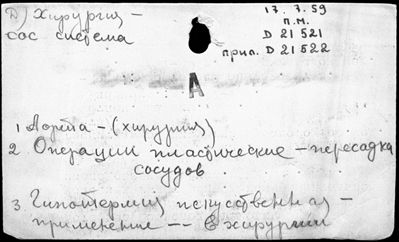 D) хирургия -
сос система
17. 7. 59
п.м.
D 21 521
прил. D 21 522
А
1 Аорта - (хирургия)
2 Операции пластические - пересадка
сосудов
3 Гипотермия искусственная -
применение -- в хирургии